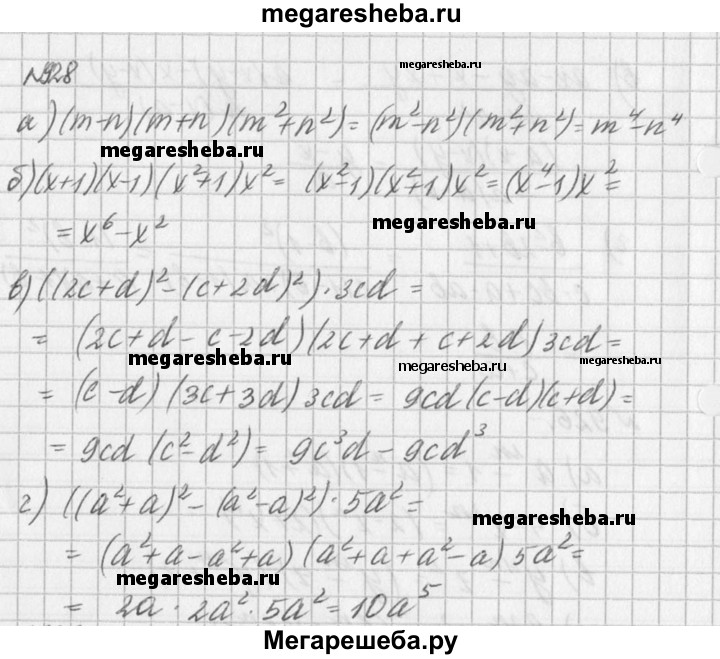 megaresheba.ru
№928
megaresheba.ru
а) (m-n)(m+n)(m²+n²) = (m²-n²)(m²+n²) = m⁴-n⁴
megaresheba.ru
б) (x+1)(x-1)(x²+1)x² = (x²-1)(x²+1)x² = (x⁴-1)x² =
megaresheba.ru
= x⁶-x²
в) ((2c+d)²-(c+2d)²)·3cd =
= (2c+d-c-2d)(2c+d+c+2d)3cd =
megaresheba.ru
megaresheba.ru
= (c-d)(3c+3d)3cd = 9cd(c-d)(c+d) =
= 9cd(c²-d²) = 9c³d-9cd³
г) ((a²+a)²-(a²-a)²)·5a² =
megaresheba.ru
= (a²+a-a²+a)(a²+a+a²-a)5a² =
megaresheba.ru
= 2a·2a²·5a² = 10a⁵
Мегарешеба.ру